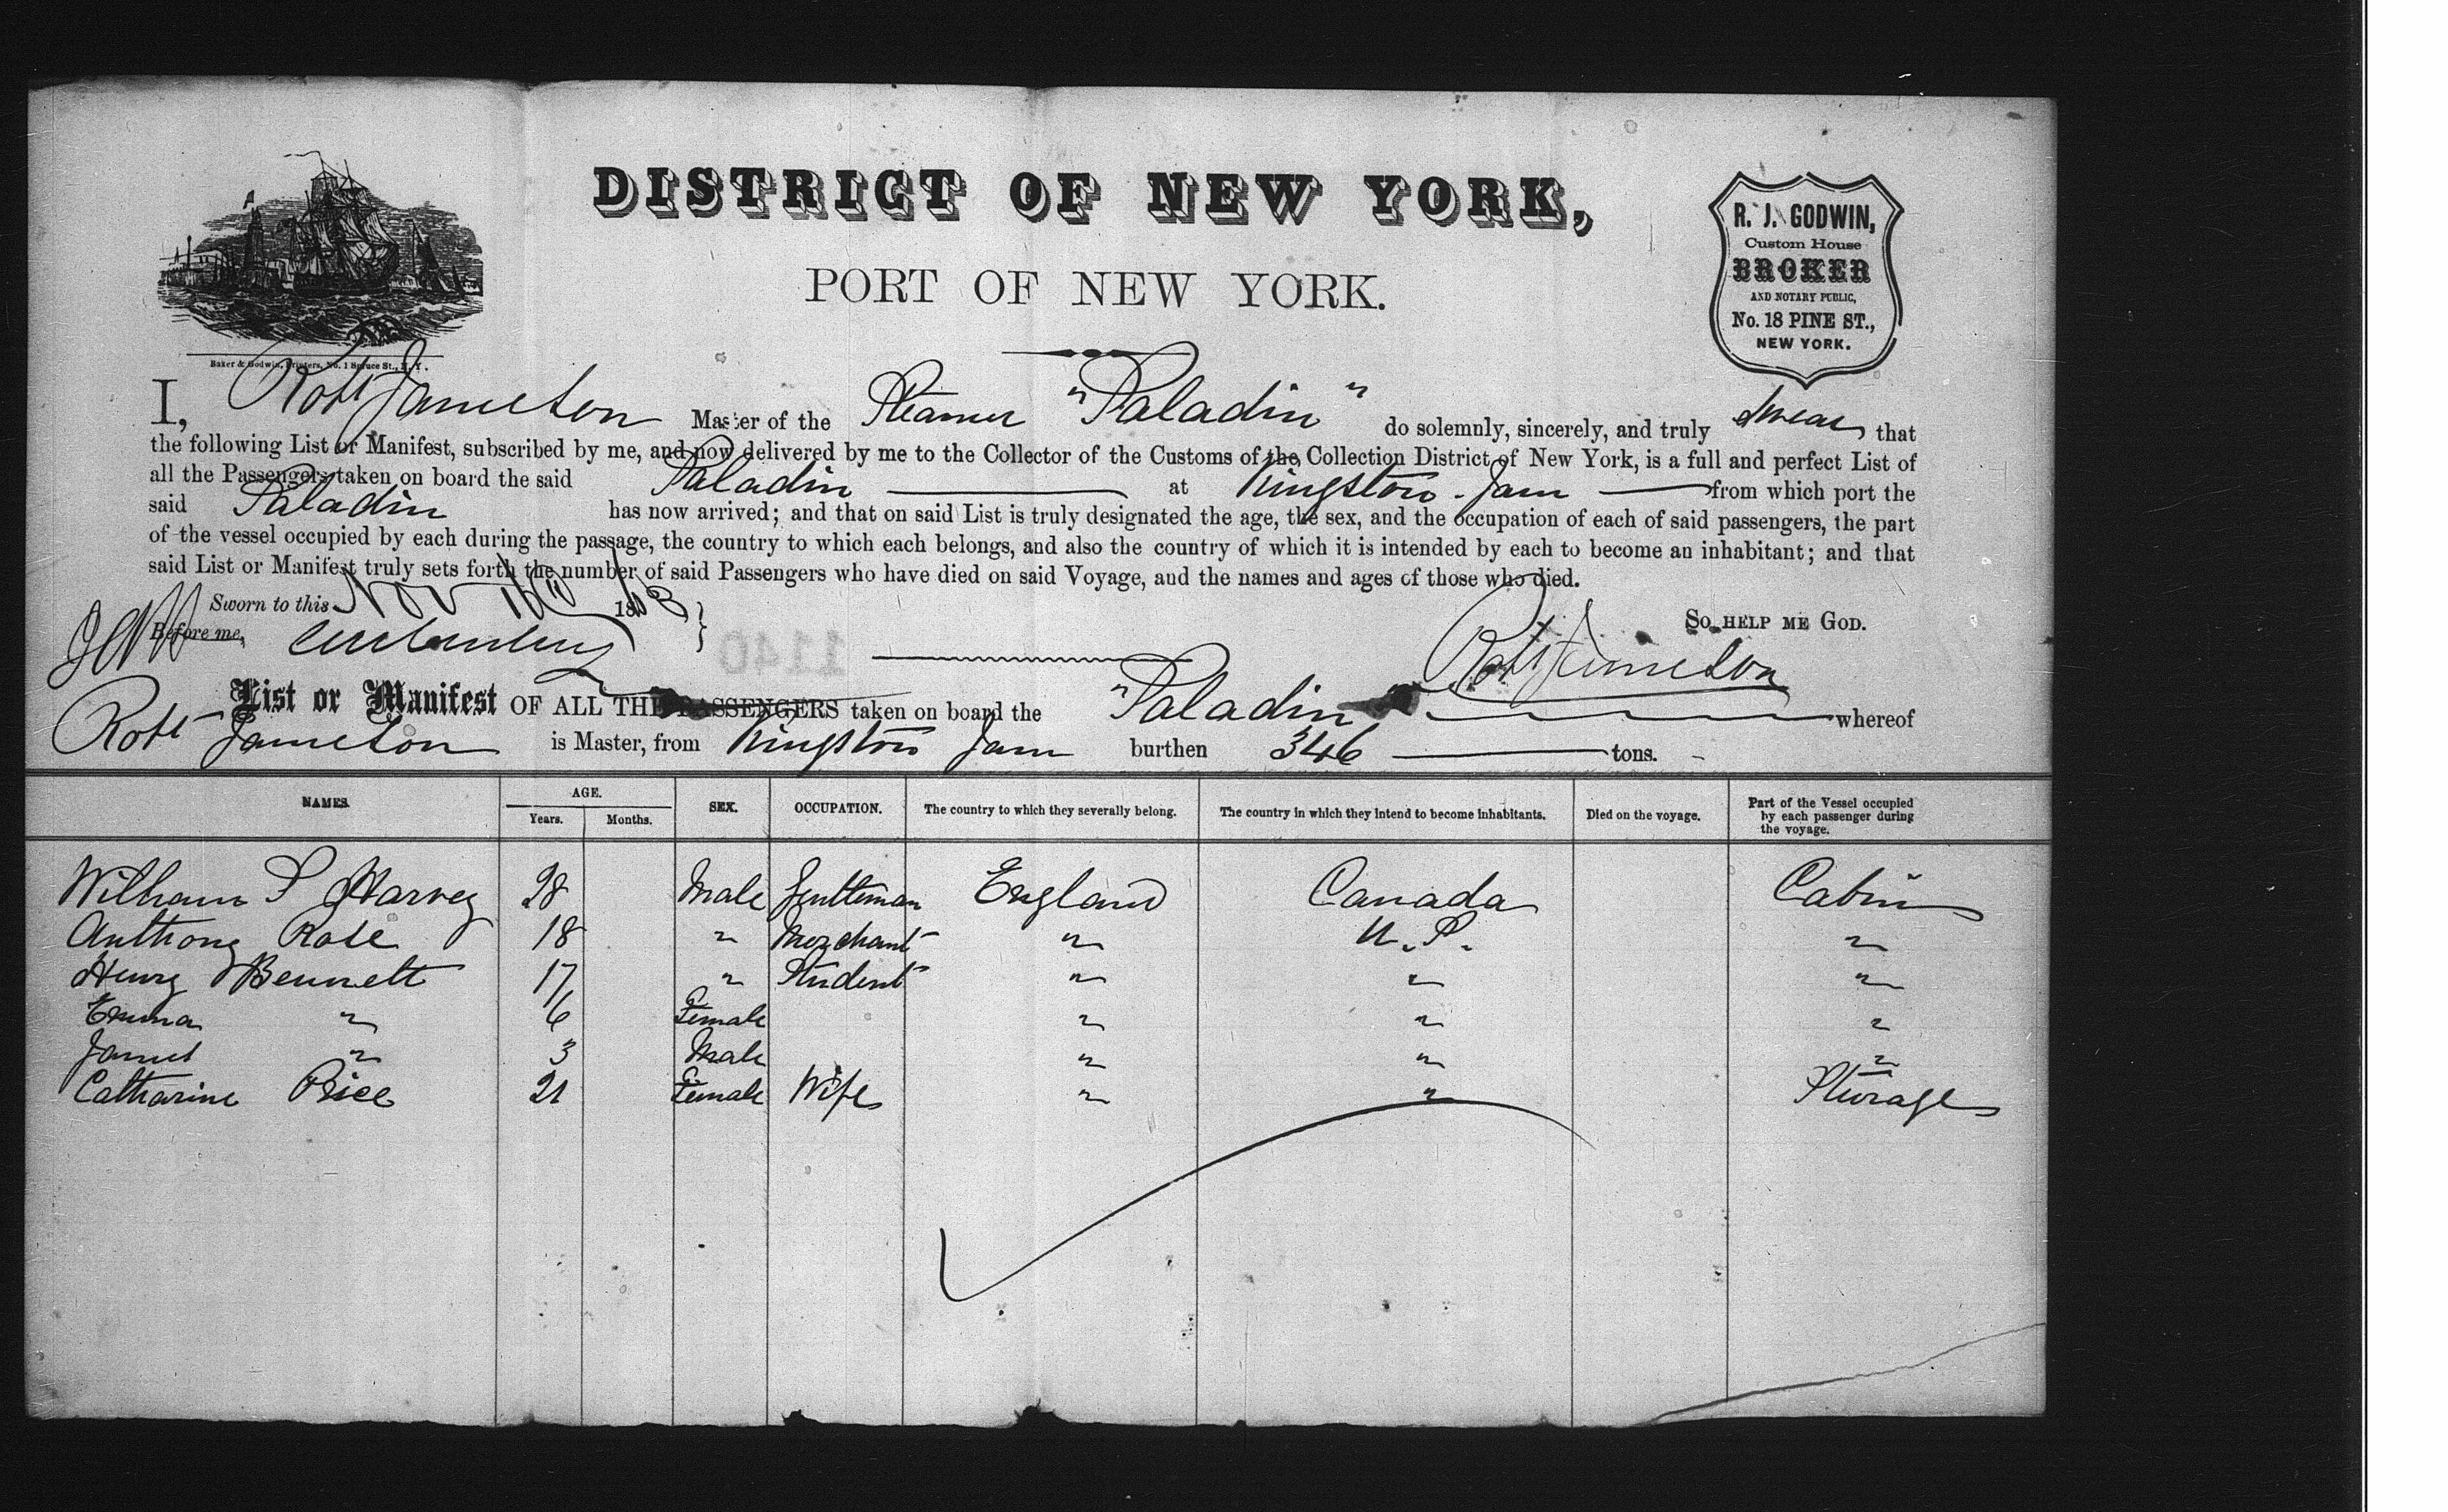 DISTRICT OF NEW YORK,
PORT OF NEW YORK.
R. J. GODWIN,
Custom House
BROKER
AND NOTARY PUBLIC,
No. 18 PINE ST.,
NEW YORK.
Baker & Godwin, Printers, No. 1 Spruce St., N. Y.
I, Robt Jameson Master of the Steamer "Paladin" do solemnly, sincerely, and truly swear that
the following List or Manifest, subscribed by me, and now delivered by me to the Collector of the Customs of the Collection District of New York, is a full and perfect List of
all the Passengers taken on board the said Paladin at Kingston Jam from which port the
said Paladin has now arrived; and that on said List is truly designated the age, the sex, and the occupation of each of said passengers, the part
of the vessel occupied by each during the passage, the country to which each belongs, and also the country of which it is intended by each to become an inhabitant; and that
said List or Manifest truly sets forth the number of said Passengers who have died on said Voyage, and the names and ages of those who died.
Sworn to this Nov 18
Before me,
SO HELP ME GOD.
1140
Robt Jameson
List or Manifest OF ALL THE PASSENGERS taken on board the "Paladin" whereof
Robt Jameson is Master, from Kingston Jam burthen 346 tons.
NAMES. AGE. Years. Months. SEX. OCCUPATION. The country to which they severally belong. The country in which they intend to become inhabitants. Died on the voyage. Part of the Vessel occupied by each passenger during the voyage.
William S Harvey 28 Male Gentleman England Canada Cabin
Anthony Rose 18 " Merchant " U. S. "
Henry Bennett 17 " Student " " "
Emma " 6 Female " " "
James " 3 Male " " "
Catharine Price 21 Female Wife " " Sterage